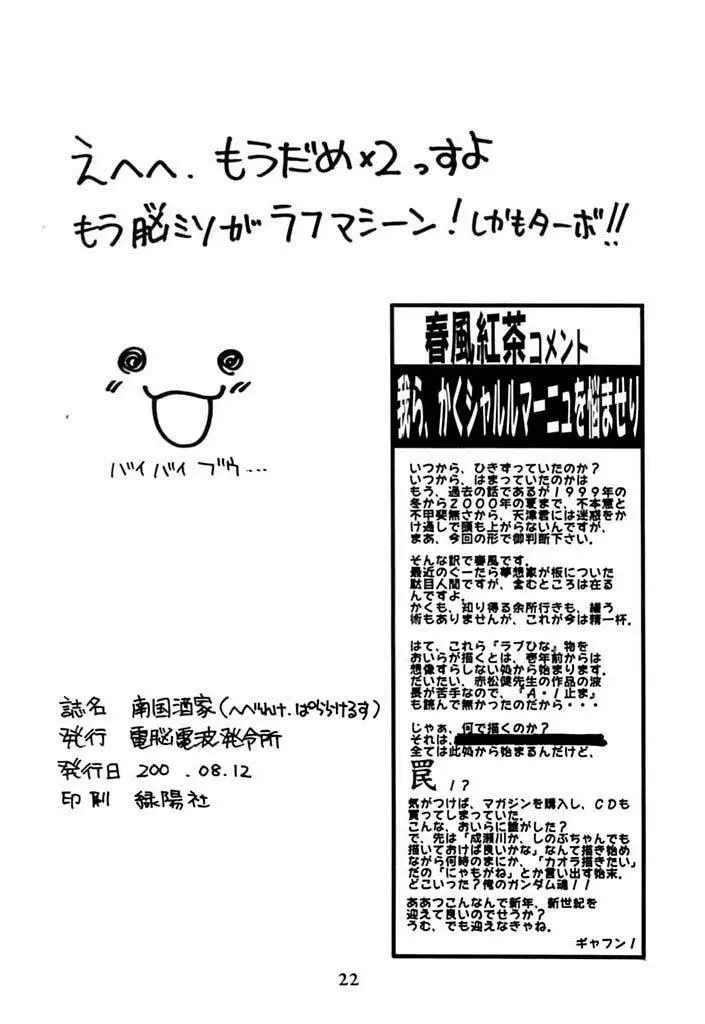 えへへ、もうだめ×2っすよ
もう脳ミソがラフマシーン!しかもターボ!!
バイバイ ブウ…
春風紅茶コメント
我ら、かくシャルルマーニュを悩ませり
いつから、ひきずっていたのか?
いつから、はまっていたのかは
もう、過去の話であるが1999年の
冬から2000年の夏まで、不本意と
不甲斐無さから、天津君には迷惑をか
け通しで頭も上がらないんですが、
まあ、今回の形で御判断下さい。
そんな訳で春風です。
最近のぐーたら夢想家が板についた
駄目人間ですが、含むところは在る
んですよ。
かくも、知り得る余所行きも、繕う
術もありませんが、これが今は精一杯。
はて、これら『ラブひな』物を
おいらが描くとは、壱年前からは
想像すらしない処から始まります。
だいたい、赤松健先生の作品の波
長が苦手なので、『A・I止ま』
も読んで無かったのだから・・・
じゃぁ、何で描くのか?
それは、
全ては此処から始まるんだけど、
罠!?
気がつけば、マガジンを購入し、CDも
買ってしまっていた。
こんな、おいらに誰がした?
で、先は「成瀬川か、しのぶちゃんでも
描いておけば良いかな」なんて描き始め
ながら何時のまにか、「カオラ描きたい」
だの「にゃもがね」とか言い出す始末。
どこいった?俺のガンダム魂!!
ああつこんなんで新年、新世紀を
迎えて良いのでせうか?
うむ、でも迎えなきゃね。
ギャフン!
誌名 南国酒家(へべれけ.ぱらららけるす)
発行 電脳電波発令所
発行日 200 .08.12
印刷 緑陽社
22